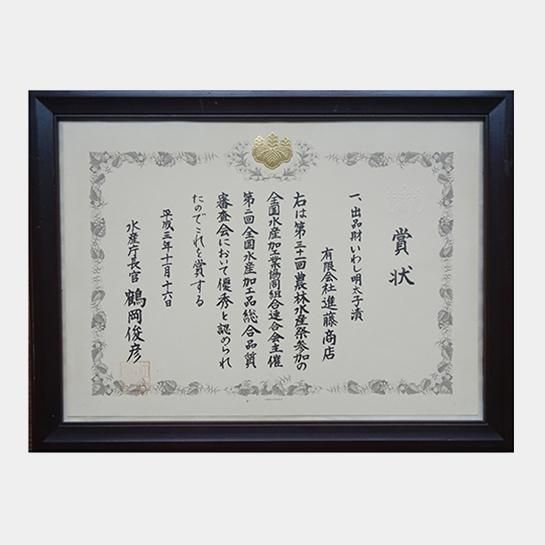 賞状
一、出品財 いわし明太子漬
有限会社 進藤商店
右は第三十回農林水産祭参加の
全国水産加工業協同組合連合会主催
第二回全国水産加工品総合品質
審査会において優秀と認められ
たのでこれを賞する
平成三年十月十六日
水産庁長官 鶴岡俊彦